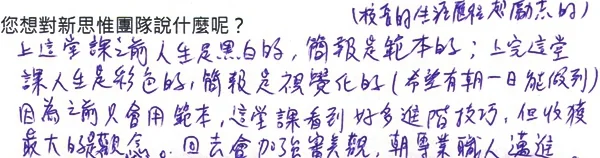 您想對新思惟團隊說什麼呢?
(校長的生活歷程超勵志的)
上這堂課之前人生是黑白的,簡報是範本的;上完這堂
課人生是彩色的,簡報是視覺化的(希望有朝一日能做到)
因為之前只會用範本,這堂課看到好多進階技巧,但收穫
最大的是觀念。回去會加強審美觀,朝專業職人邁進。